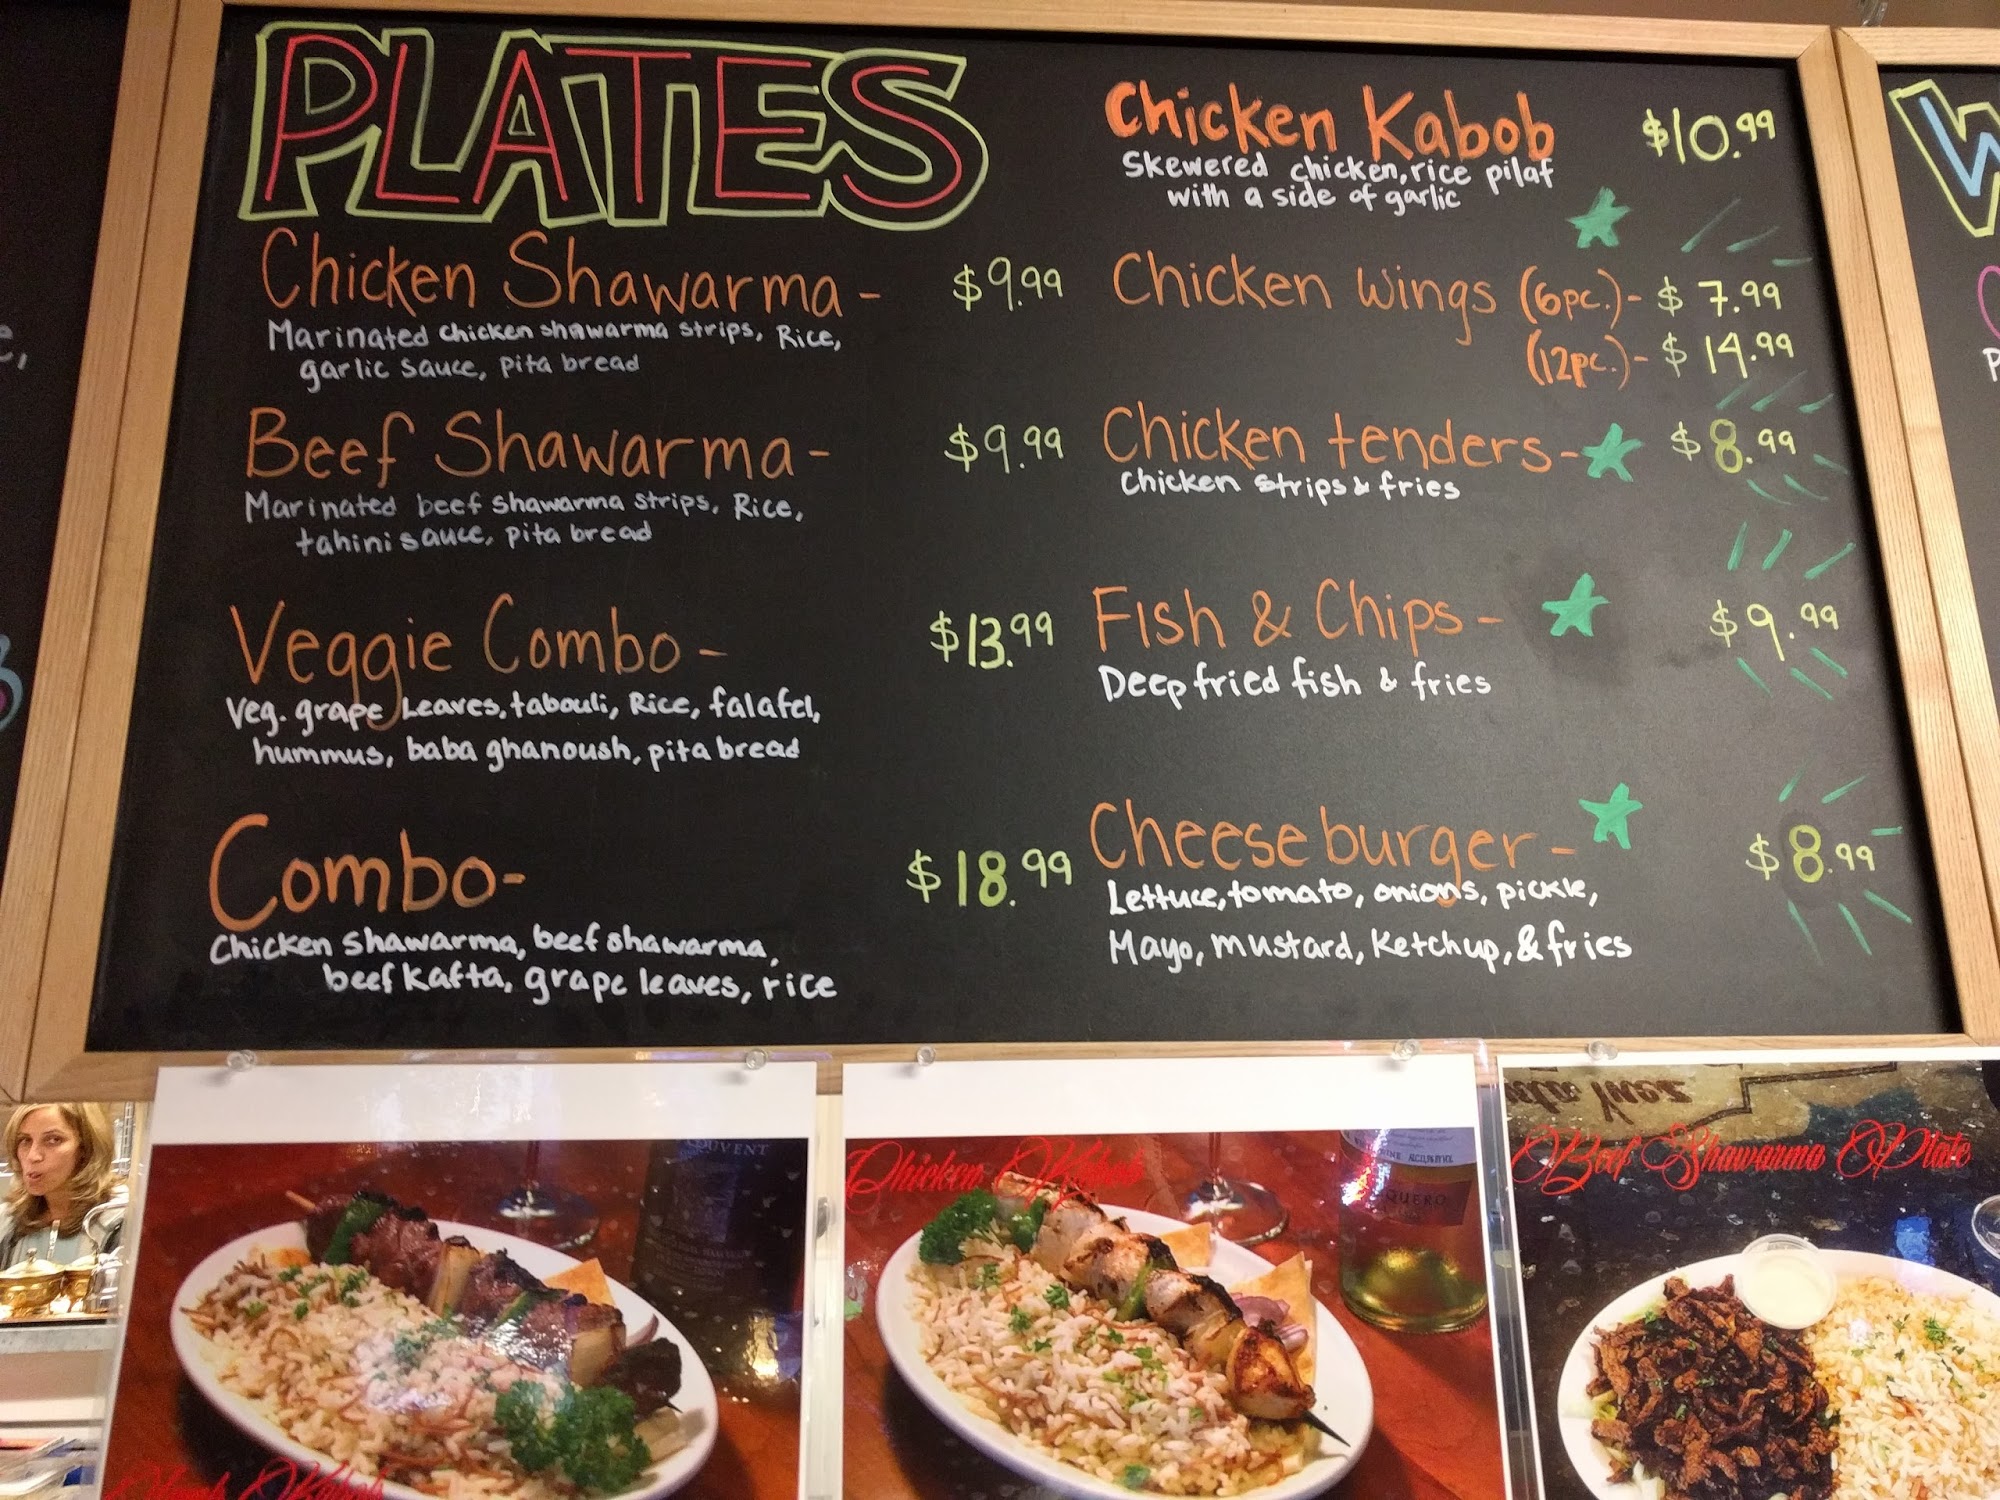 PLATES
Chicken Shawarma - $9.99
Marinated chicken shawarma strips, Rice,
garlic sauce, pita bread
Beef Shawarma - $9.99
Marinated beef shawarma strips, Rice,
tahini sauce, pita bread
Veggie Combo - $13.99
Veg. grape Leaves, tabouli, Rice, falafel,
hummus, baba ghanoush, pita bread
Combo- $18.99
Chicken shawarma, beef shawarma,
beef kafta, grape leaves, rice
Chicken Kabob $10.99
Skewered chicken, rice pilaf
with a side of garlic
Chicken Wings (6pc.)- $7.99
(12pc.)- $14.99
Chicken tenders- $8.99
Chicken strips & fries
Fish & Chips - $9.99
Deep fried fish & fries
Cheeseburger - $8.99
Lettuce, tomato, onions, pickle,
Mayo, mustard, Ketchup, & fries
Chicken Kabob
Beef Shawarma Plate
Kabob